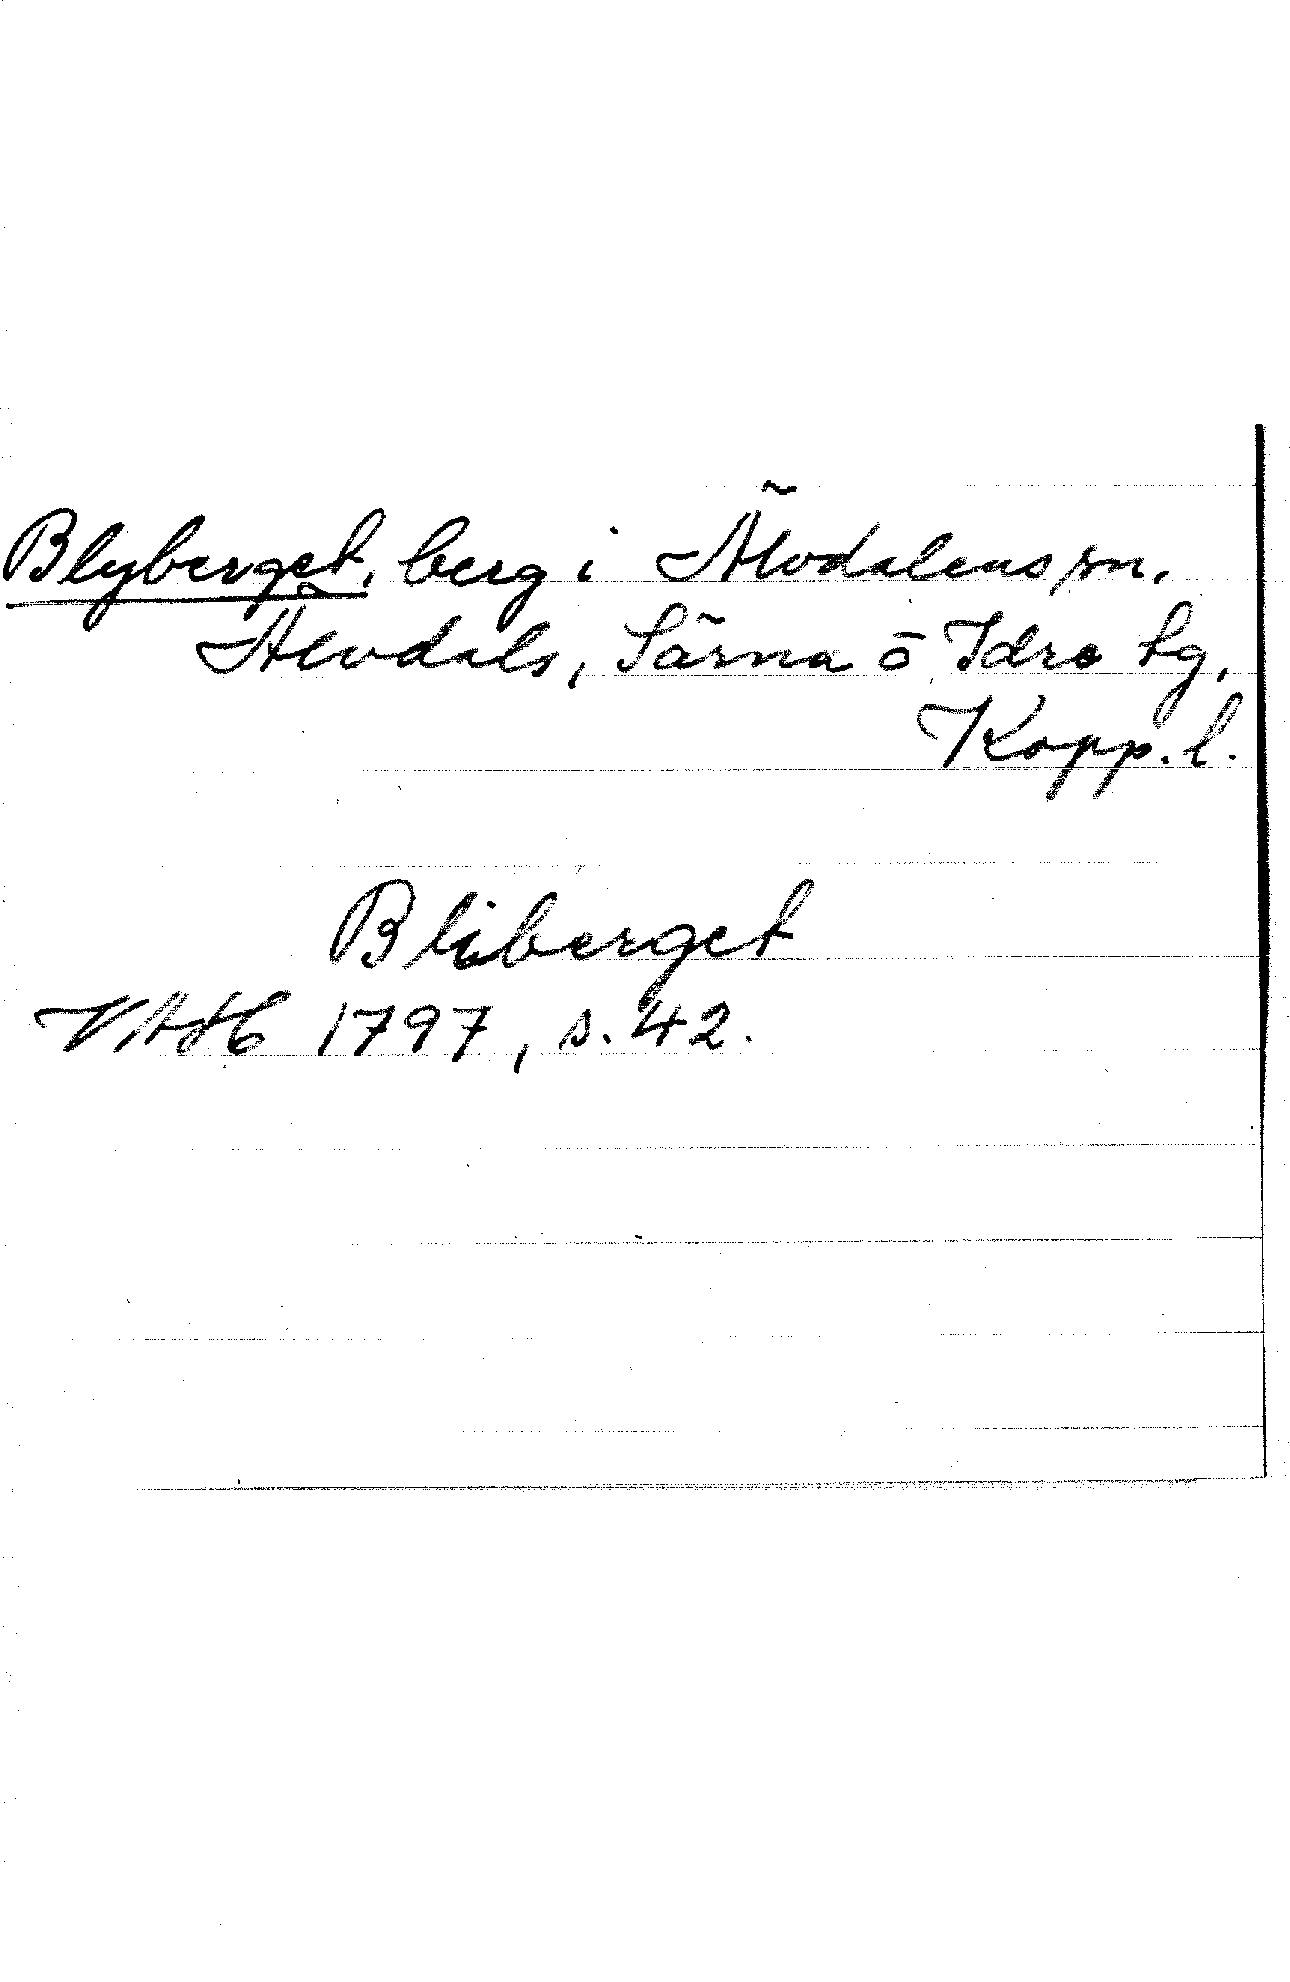 Blyberget, berg i Älvdalens sn,
Älvdals, Särna o Idre tg,
Kopp. l.
Bliberget
VAH 1797, s. 42.